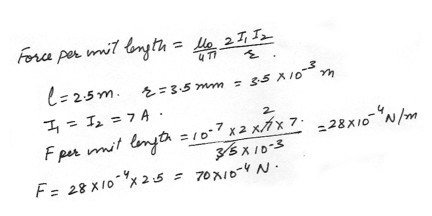 Force per unit length = μ₀/4π 2 I₁ I₂/r.
l = 2.5 m. r = 3.5 mm = 3.5 × 10⁻³ m
I₁ = I₂ = 7 A.
F per unit length = 10⁻⁷ × 2 × 7 × 7. 2 / 35 × 10⁻³ = 28 × 10⁻⁴ N/m
F = 28 × 10⁻⁴ × 2.5 = 70 × 10⁻⁴ N.